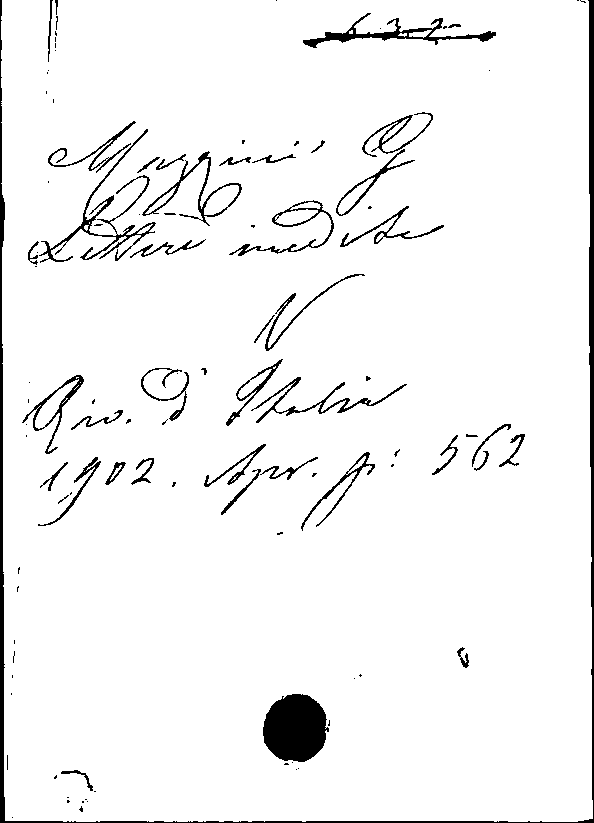 6.3.2
Mazzini G
Lettere inedite
V
Riv. d' Italia
1902. Apr. p: 562